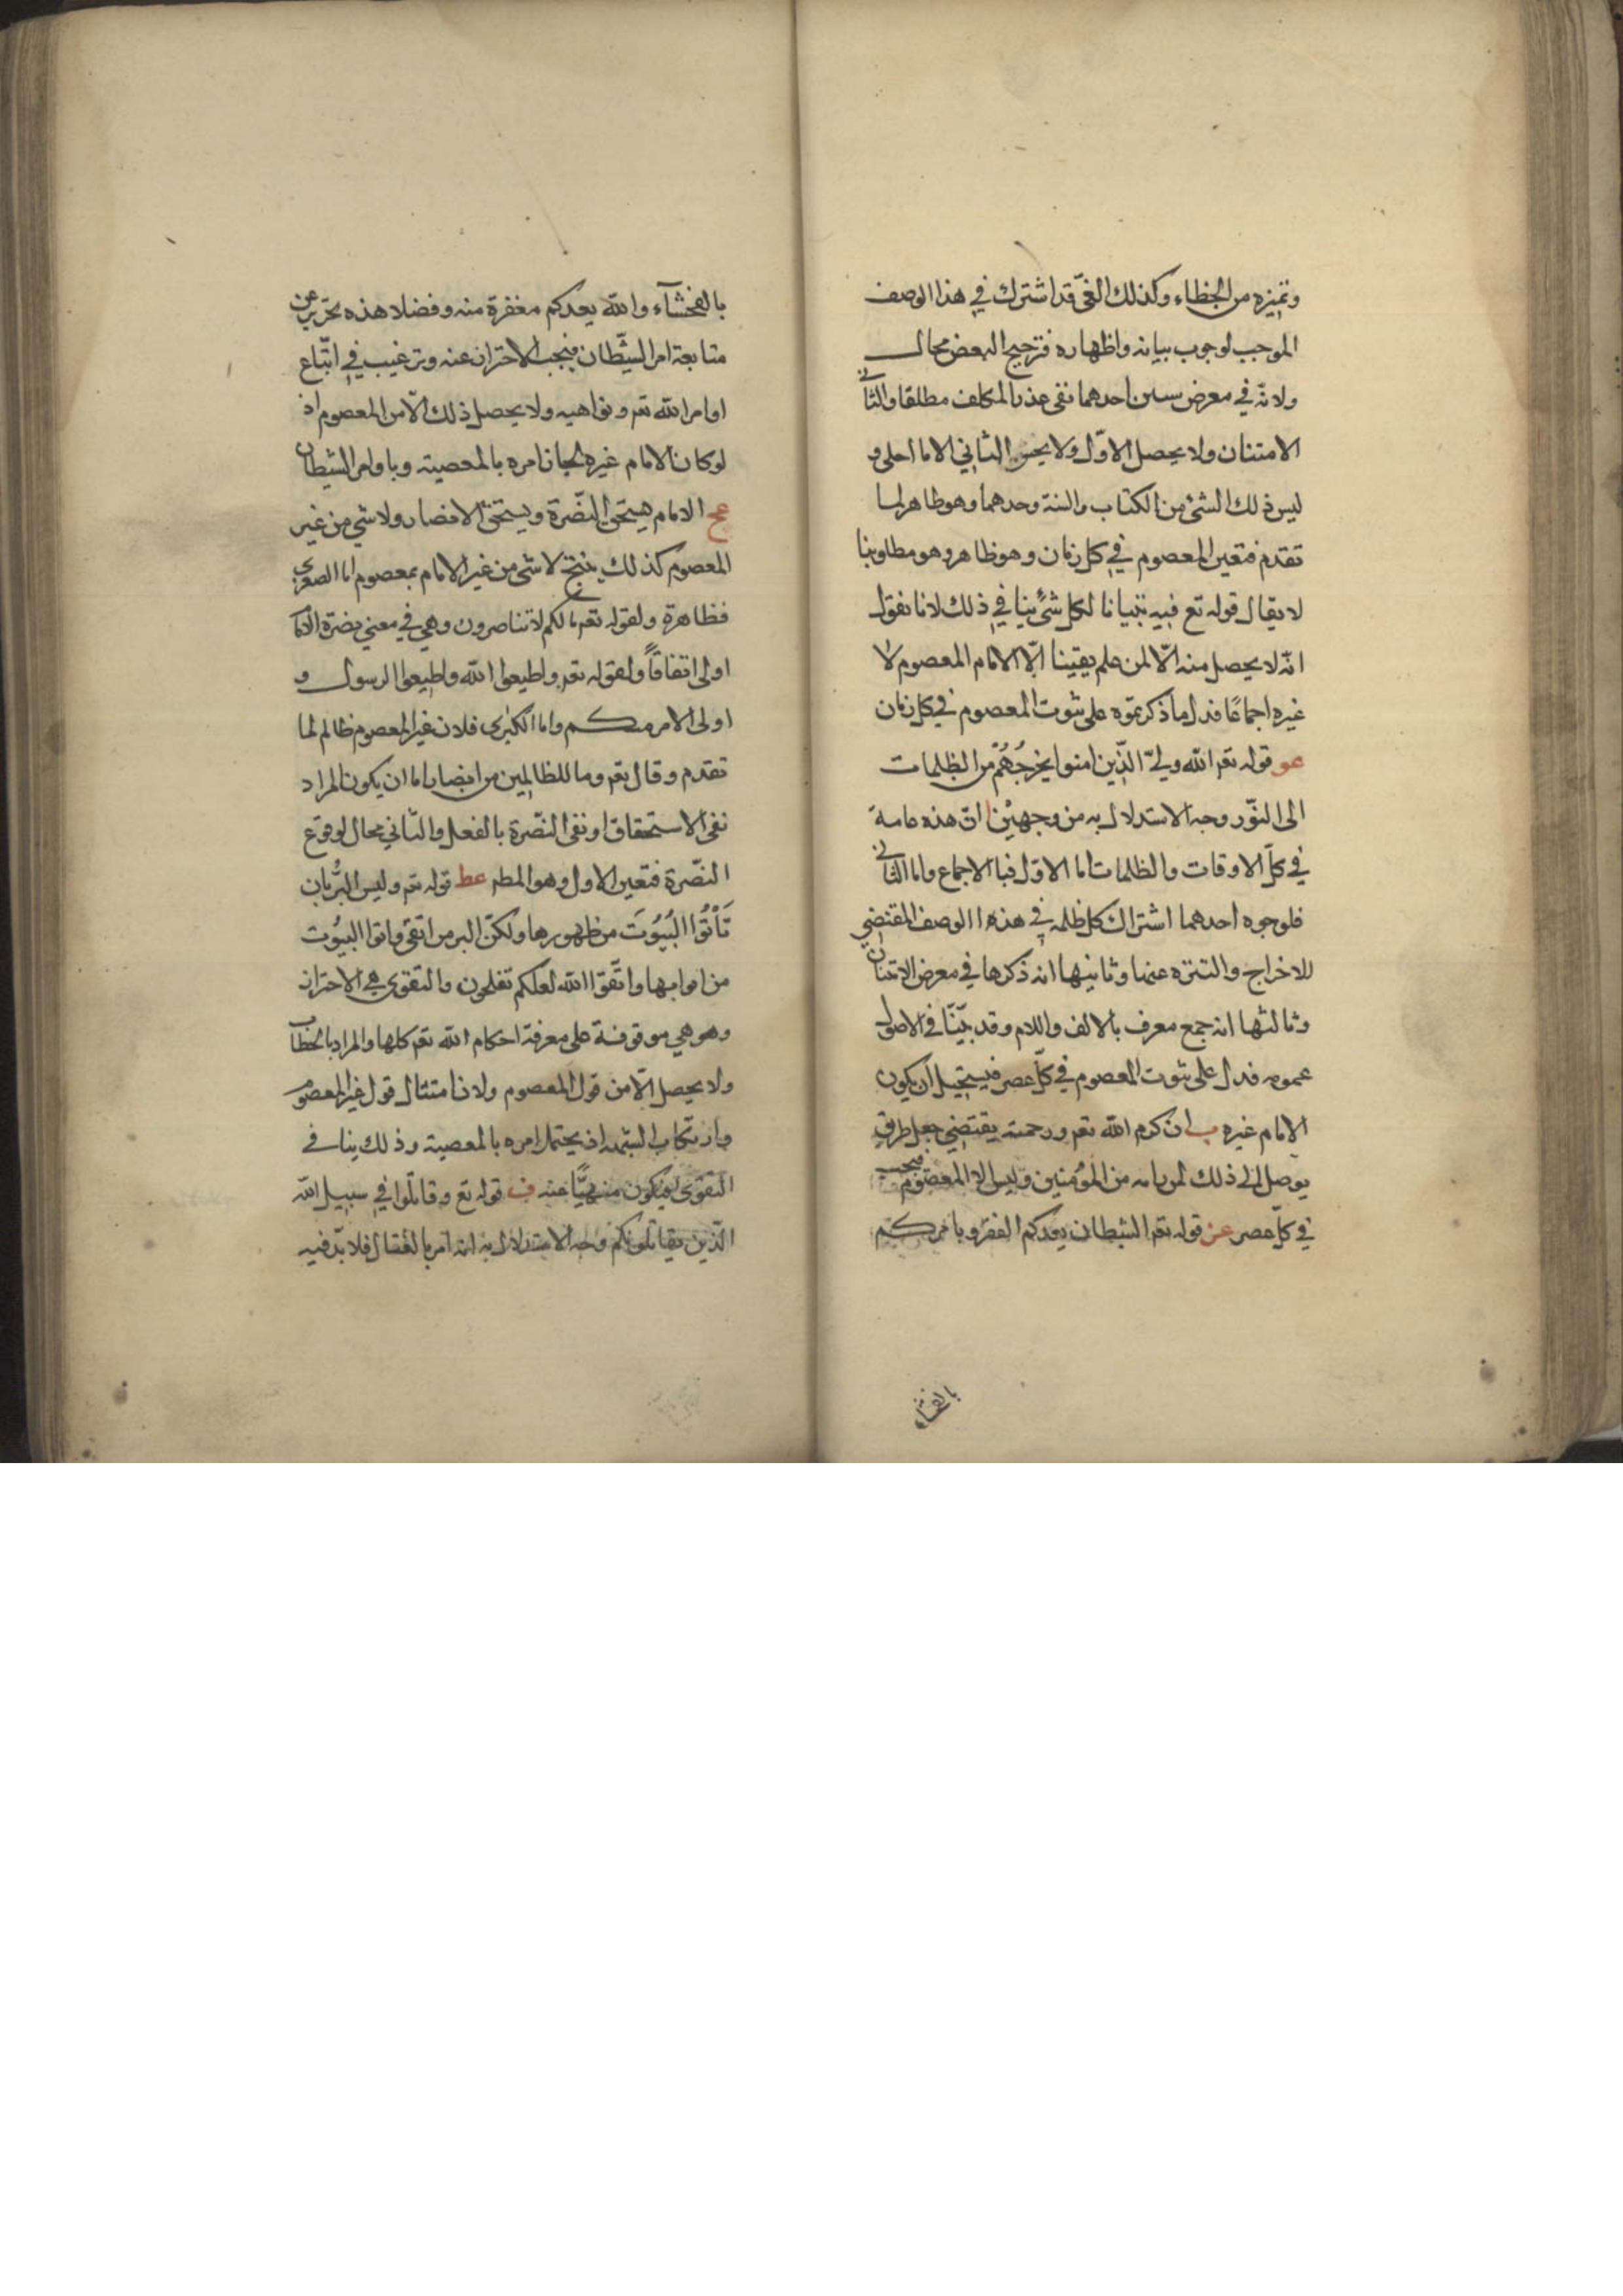 وتميزه من الخطاء وكذلك الغىّ قد اشترك في هذا الوصف
الموجب لوجوب بيانه واظهاره فترجيح البعض محال
ولانه في معرض احدهما نفى عذر المكلف مطلقا والثانى
الامتنان ولا يحصل الاوّل ولا يحسن الثاني الا ما اعلى و
ليس ذلك الشئ من الكتاب والسنة وحدهما وهو ظاهر لما
تقدم فتعين المعصوم في كل زمان وهو ظاهر وهو مطلوبنا
لا يقال قوله تع فيه تبيانا لكل شئ ينافي ذلك لانا نقول
انّه لا يحصل منه الّا لمن علم يقينا الّا الامام المعصوم لا
غيره اجماعًا فدل ما ذكرتموه على ثبوت المعصوم في كل زمان
عو قوله تعم الله ولىّ الّذين امنوا يخرجُهُم من الظلمات
الى النّور وجه الاستدلال به من وجهين ا انّ هذه عامة
في كلّ الاوقات والظلمات اما الاوّل فبالاجماع واما الثانى
فلوجوه احدهما اشتراك كل ظلمه في هذه االوصف المقتضي
للاخراج والتنزه عنها وثانيها انه ذكرها في معرض الامتنان
وثالثها انه جمع معرف بالالف واللام وقد بيّنّا في الاصول
عمومه فدل على ثبوت المعصوم في كلّ عصر فيستحيل ان يكون
الامام غيره ب ان كرم الله تعم ورحمته يقتضي جعل طريق
يوصل الى ذلك لمن رامه من المؤمنين وليس الا المعصوم فيجب
في كلّ عصر عز قوله تعم الشيطان يعدكم الفقر ويامركم
بالفحشاء
بالفحشآء والله يعدكم مغفرة منه وفضلا هذه تحذير عن
متابعة امر الشّيطان فيجب الاحتراز عنه وترغيب في اتّباع
اوامر الله تعم ونواهيه ولا يحصل ذلك الّا من المعصوم اذ
لو كان الامام غيره لجاز امره بالمعصية وباوامر الشيطان
عح الامام يستحق النّصرة ويستحق الانصار ولا شي من غير
المعصوم كذلك ينتج لا شئ من غير الامام بمعصوم اما الصغرى
فظاهرة ولقوله تعم ما لكم لا تناصرون وهي في معني نصرة الاما
اولى اتفاقاً ولقوله تعم واطيعوا الله واطيعوا الرسول و
اولى الامر منكم واما الكبرى فلان غير المعصوم ظالم لما
تقدم وقال تعم وما للظالمين من انصار اما ان يكون المراد
نفى الاستحقاق او نفى النّصرة بالفعل والثاني محال لوقوع
النّصرة فتعين الاول وهو المطم عط قوله تعم وليس البرُّ بان
تَأتُوا البُيُوتَ من ظهورها ولكنّ البر من اتقى واتوا البيُوت
من ابوابها واتّقوا الله لعلكم تفلحون والتقوى هي الاحتراز
وهو هي موقوفة على معرفة احكام الله تعم كلها والمراد بالخطاب
ولا يحصل الّا من قول المعصوم ولان امتثال قول غير المعصوم
وارتكاب الشبهه اذ يحتمل امره بالمعصية وذلك ينافي
التقوى فيكون منهيًّا عنه ف قوله تع وقاتلوا في سبيل الله
الّذين يقاتلونكم وجه الاستدلال به انه امر بالقتال فلا بدّ فيه